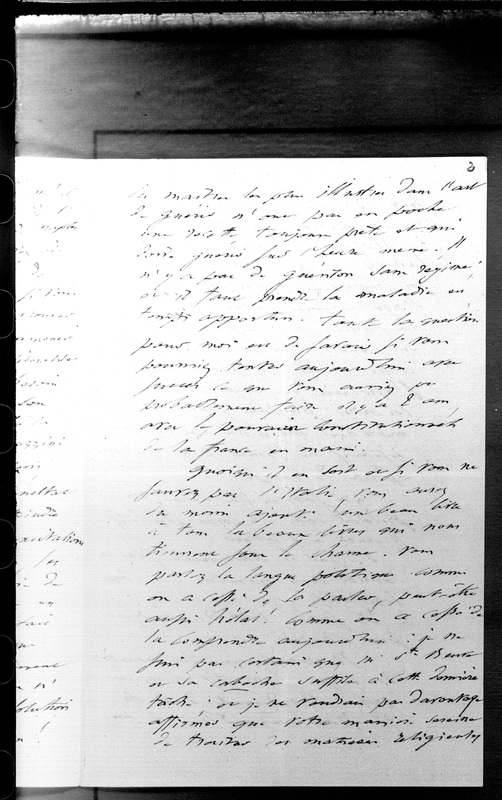 3
les maîtres les plus illustres dans l'art
de guérir n'ont pas en poche
une recette toujours prête et qui
doive guérir sur l'heure même. Il
n'y a pas de guérison sans régime,
et il faut prendre la maladie en
temps opportun. toute la question
pour moi est de savoir si vous
pourriez tenter aujourd'hui avec
succès ce que vous auriez pu
probablement faire il y a 8 ans
avec les pouvoirs constitutionnels
de la france en mains.
Quoiqu'il en soit et si vous ne
sauvez pas l'Italie, vous aurez
du moins ajouté un beau livre
à tous les beaux livres qui nous
tiennent sous le charme. vous
parlez la langue politique comme
on a cessé de la parler, peut-être
aussi hélas! comme on a cessé de
la comprendre aujourd'hui : je ne
suis pas certain que M. Ste Beuve
et sa caboche suffise à cette dernière
tâche, et je ne voudrais pas davantage
affirmer que votre manière sereine
de traiter les matières religieuses